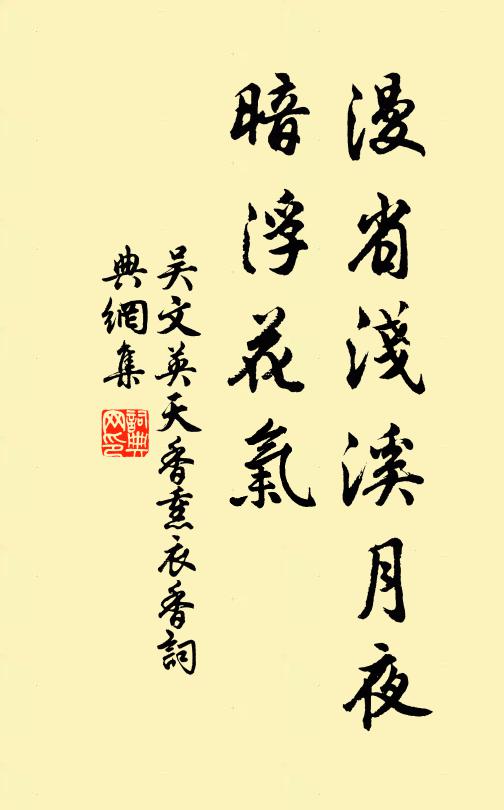 漫省淺溪月夜
暗浮花氣
吳文英天香熏衣香詞
典網集
詞典網印